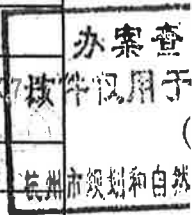 办案查
该件仅用于
(
杭州市规划和自然